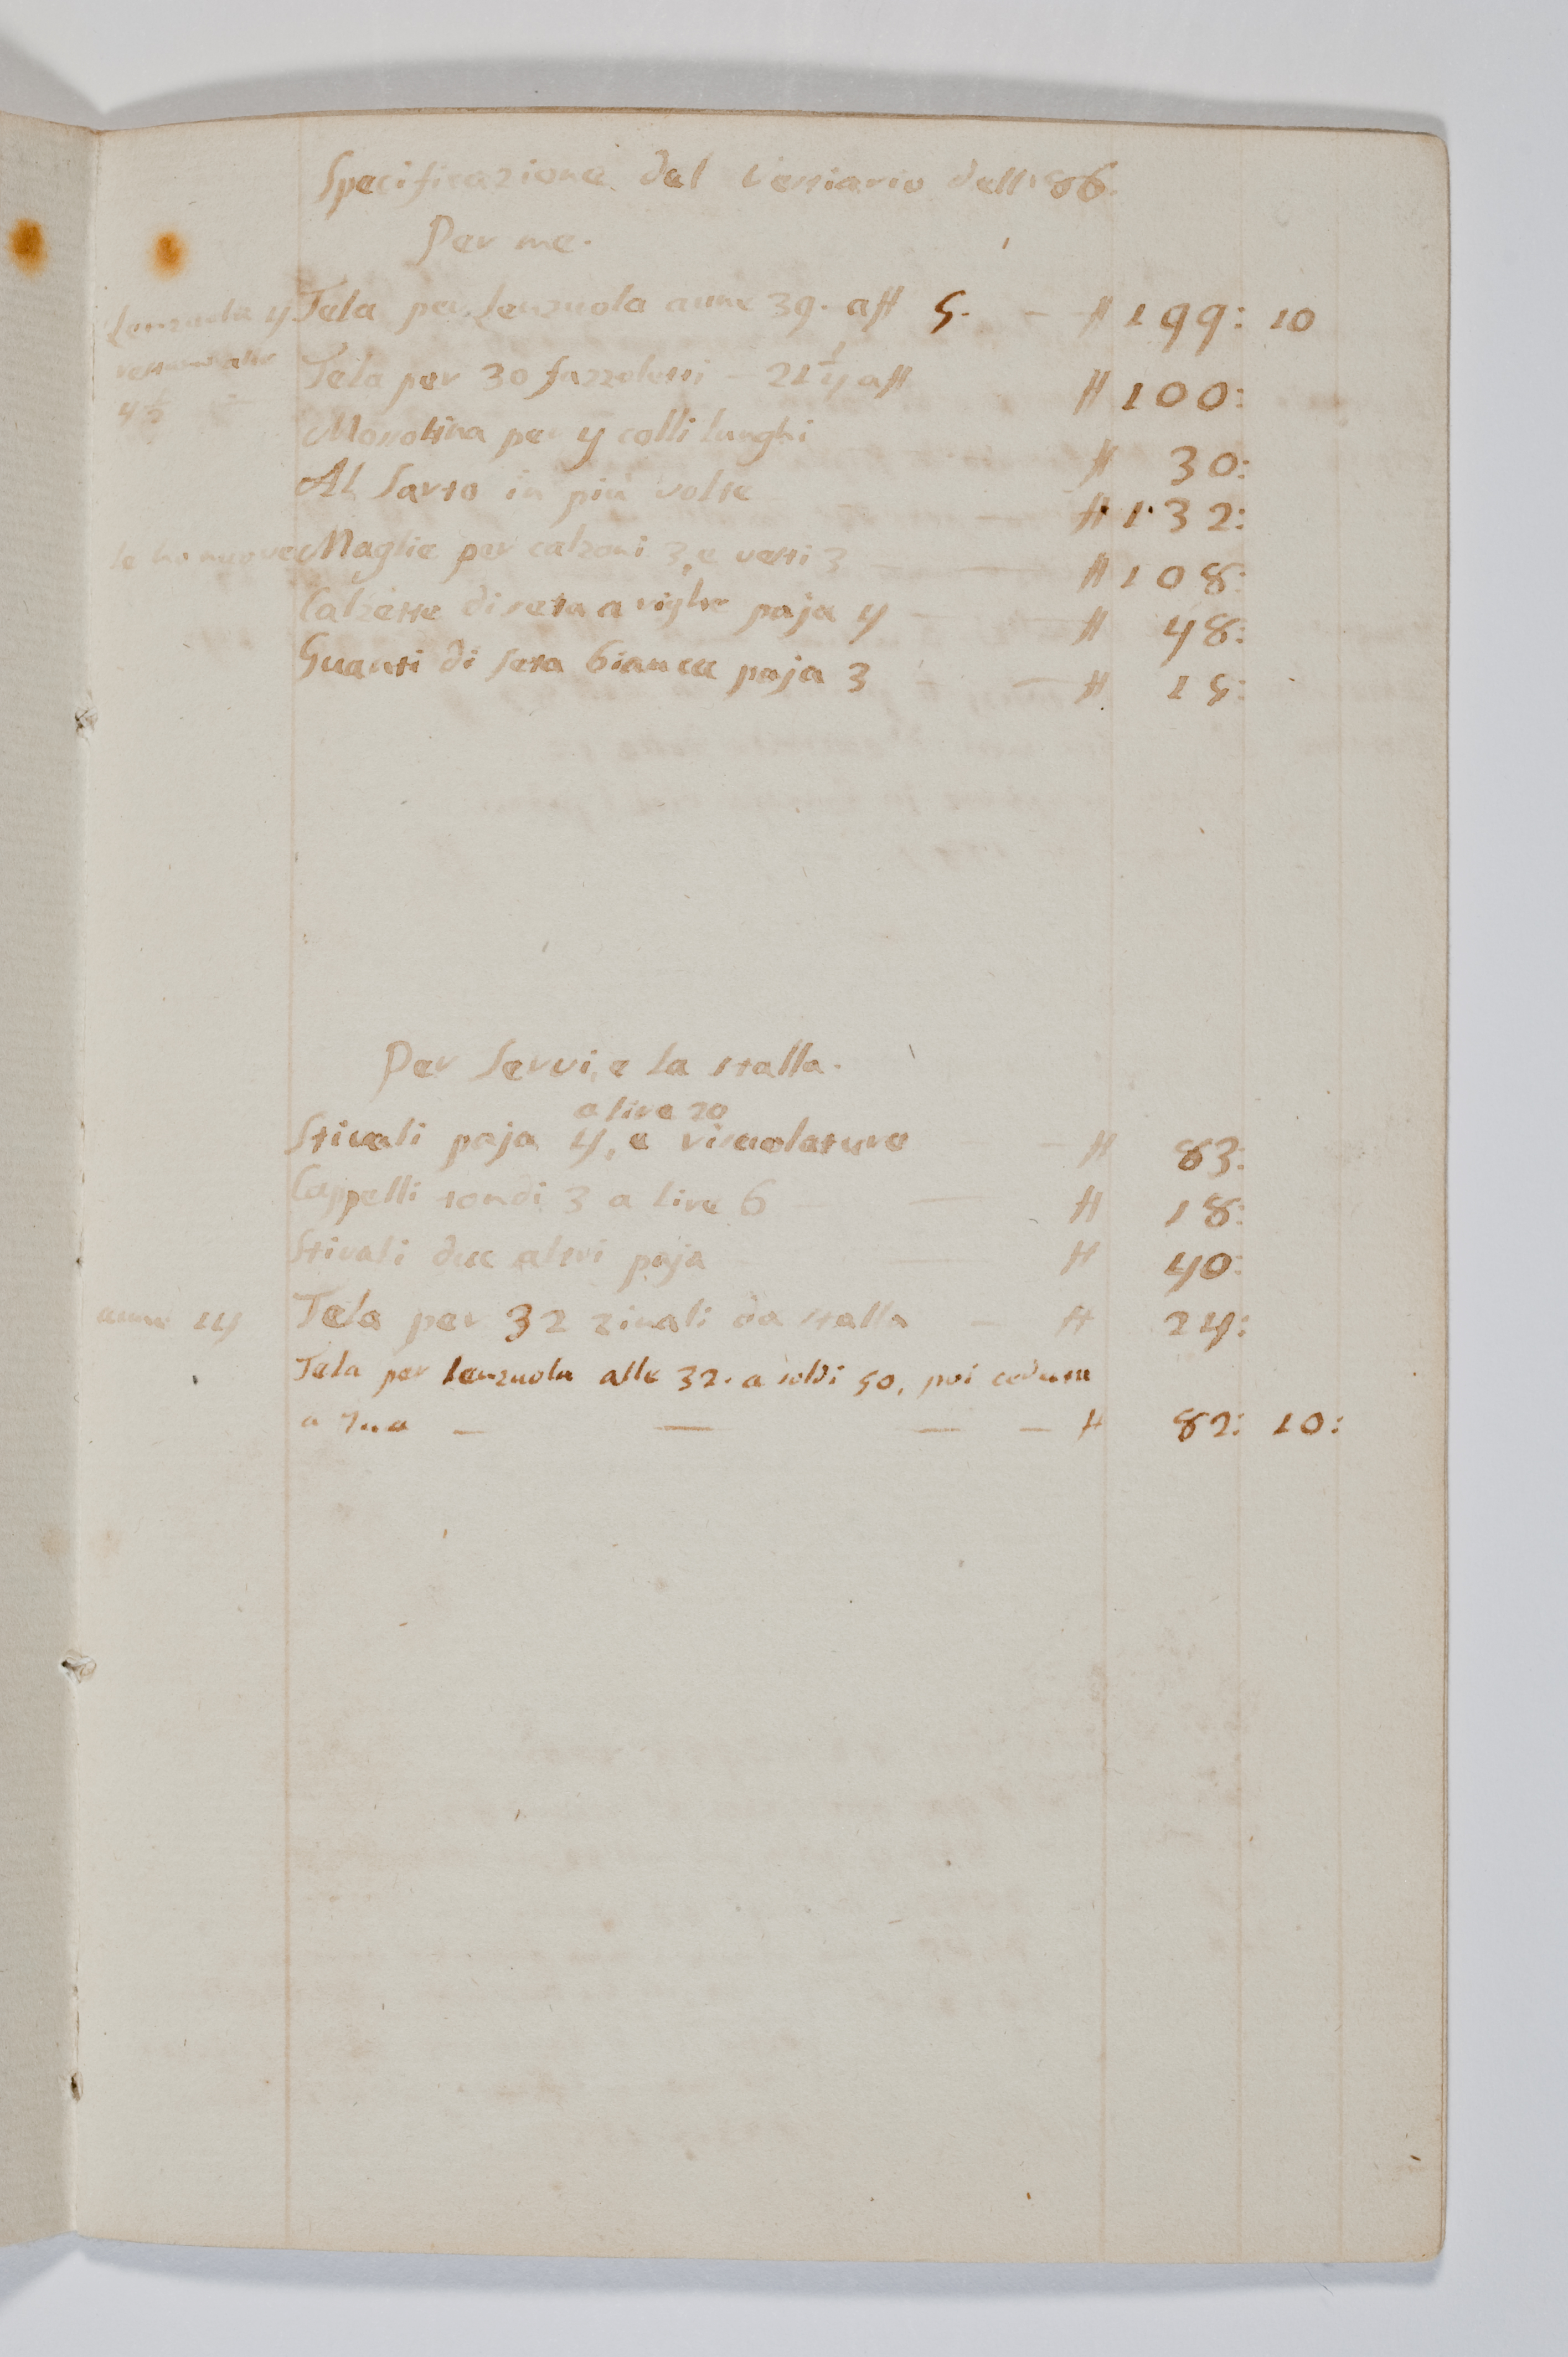 Specificazione del Vestiario dell'86.
Per me.
Lenzuola 4 Tela per Lenzuola aune 39. a ₶ 5. — ₶ 199: 10
restano alte Tela per 30 fazzoletti — 21 1/4 a ₶ ₶ 100:
4 1/2
Mossolina per 4 colli lunghi ₶ 30:
Al Sarto in più volte ₶ 132:
le ho nuove Maglie per calzoni 3, e vesti 3 — — ₶ 108:
Calzette di seta a righe paja 4 — — ₶ 48:
Guanti di seta bianca paja 3 — — ₶ 15:
Per Servi, e la stalla.
a lire 20
Stivali paja 4, e risuolature — ₶ 83:
Cappelli tondi 3 a lire 6 — — ₶ 18:
Stivali due altri paja — — ₶ 40:
aune 14 Tela per 32 zinali da stalla — ₶ 24:
Tela per lenzuola alle 32. a soldi 50, poi ceduta
a — — — — ₶ 82: 10: